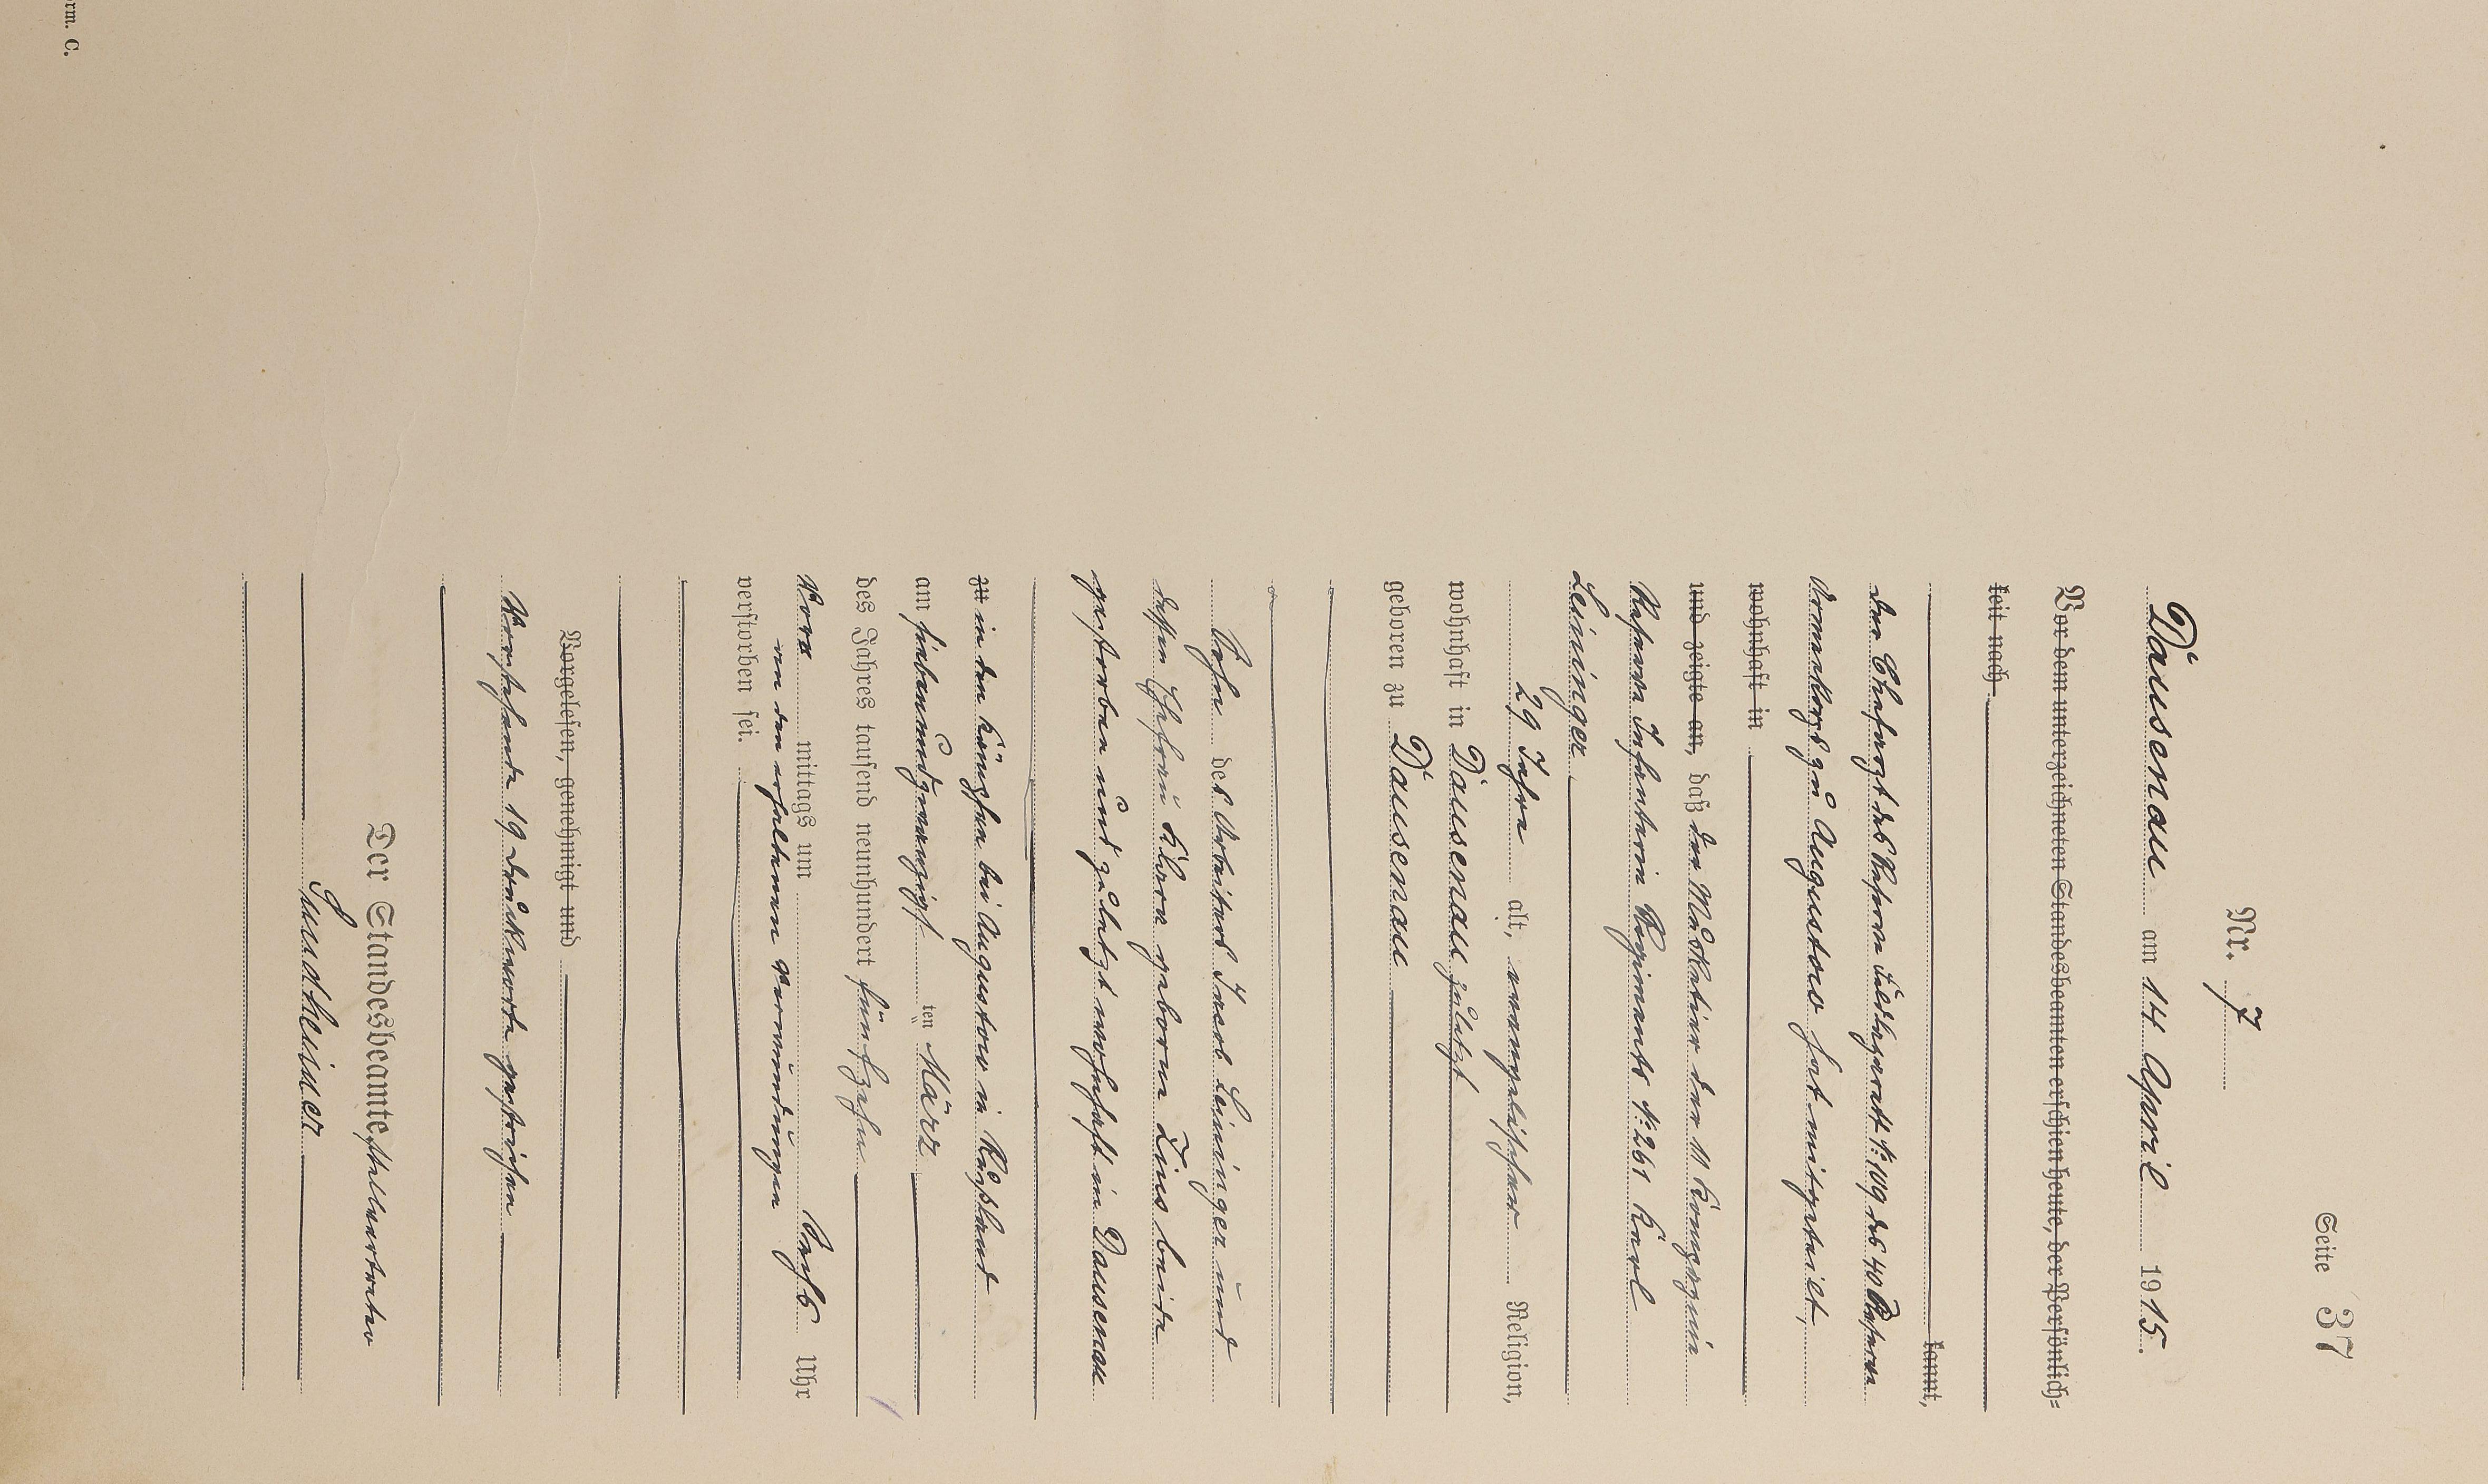 Seite 37
Nr. 7
Dausenau am 14 April 1915.
Vor dem unterzeichneten Standesbeamten erschien heute, der Persönlich=
keit nach
kannt,
Der Chefarzt des Reserve Feldlazarett N: 109 des 40 Reserve
Armeekorps zu Augustow hat mitgeteilt,
wohnhaft in
und zeigte an, daß der Musketier der 11 Kompagnie
Reserve Infanterie Regiments N: 261 Karl
Leininger
29 Jahre alt, evangelischer Religion,
wohnhaft in Dausenau zuletzt
geboren zu Dausenau
Sohn des Arbeiters Jacob Leininger und
dessen Ehefrau Klara geborene Zins beide
gestorben und zuletzt wohnhaft in Dausenau
zu in den Kämpfen bei Augustow in Rußland
am siebenundzwanzigst ten März
des Jahres tausend neunhundert fünfzehn
Vor mittags um sechs Uhr
an den erhaltenen Verwundungen
verstorben sei.
Vorgelesen, genehmigt und
Vorstehende 19 Druckworte gestrichen
Der Standesbeamte stellvertreter
Sundheimer
rm. C.